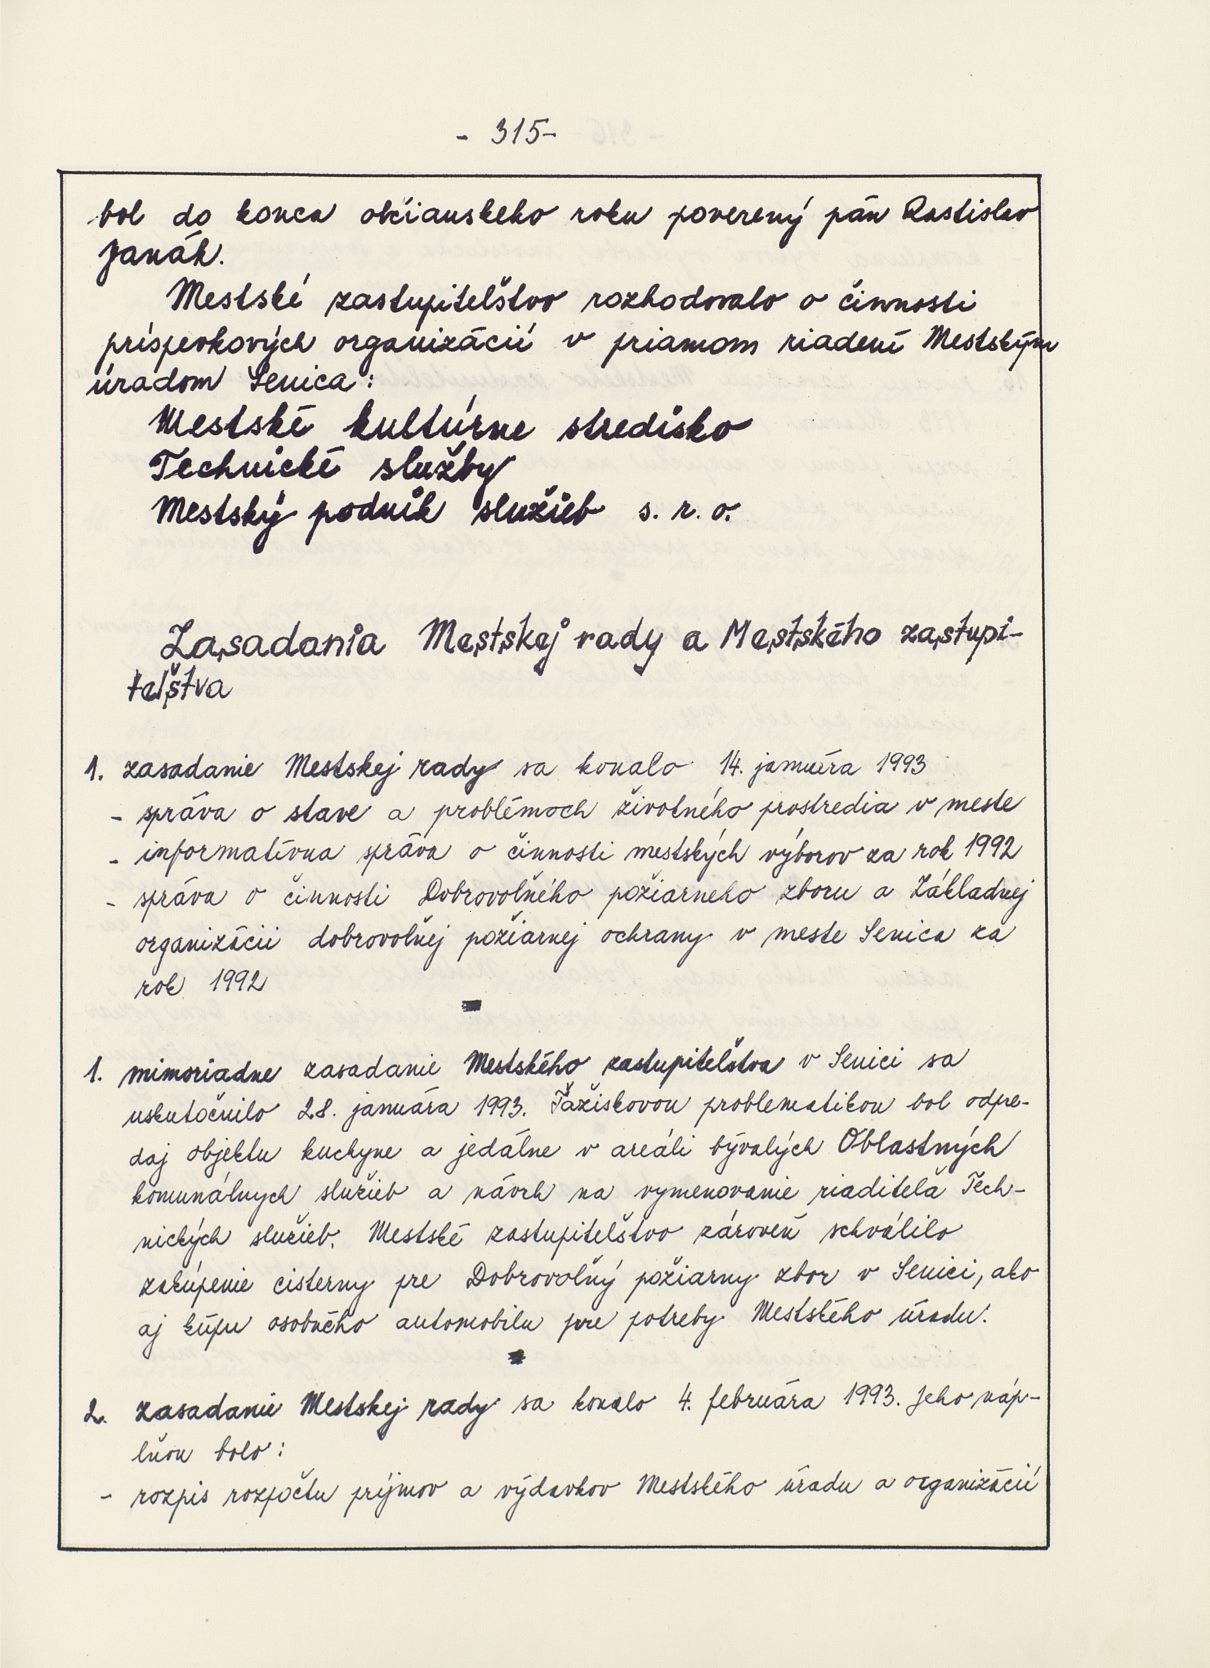 - 315-
bol do konca občianskeho roku poverený pán Rastislav
Janák.
Mestské zastupiteľstvo rozhodovalo o činnosti
príspevkových organizácií v priamom riadení Mestským
úradom Senica:
Mestské kultúrne stredisko
Technické služby
Mestský podnik služieb s. r. o.
Zasadania Mestskej rady a Mestského zastupi-
teľstva
1. zasadanie Mestskej rady sa konalo 14. januára 1993
- správa o stave a problémoch životného prostredia v meste
- informatívna správa o činnosti mestských výborov za rok 1992
- správa o činnosti Dobrovoľného požiarneho zboru a Základnej
organizácii dobrovoľnej požiarnej ochrany v meste Senica za
rok 1992
1. mimoriadne zasadanie Mestského zastupiteľstva v Senici sa
uskutočnilo 28. januára 1993. Ťažiskovou problematikou bol odpre-
daj objektu kuchyne a jedálne v areáli bývalých Oblastných
komunálnych služieb a návrh na vymenovanie riaditeľa Tech-
nických služieb. Mestské zastupiteľstvo zároveň schválilo
zakúpenie cisterny pre Dobrovoľný požiarny zbor v Senici, ako
aj kúpu osobného automobilu pre potreby Mestského úradu.
2. zasadanie Mestskej rady sa konalo 4. februára 1993. Jeho náp-
lňou bolo:
- rozpis rozpočtu príjmov a výdavkov Mestského úradu a organizácií